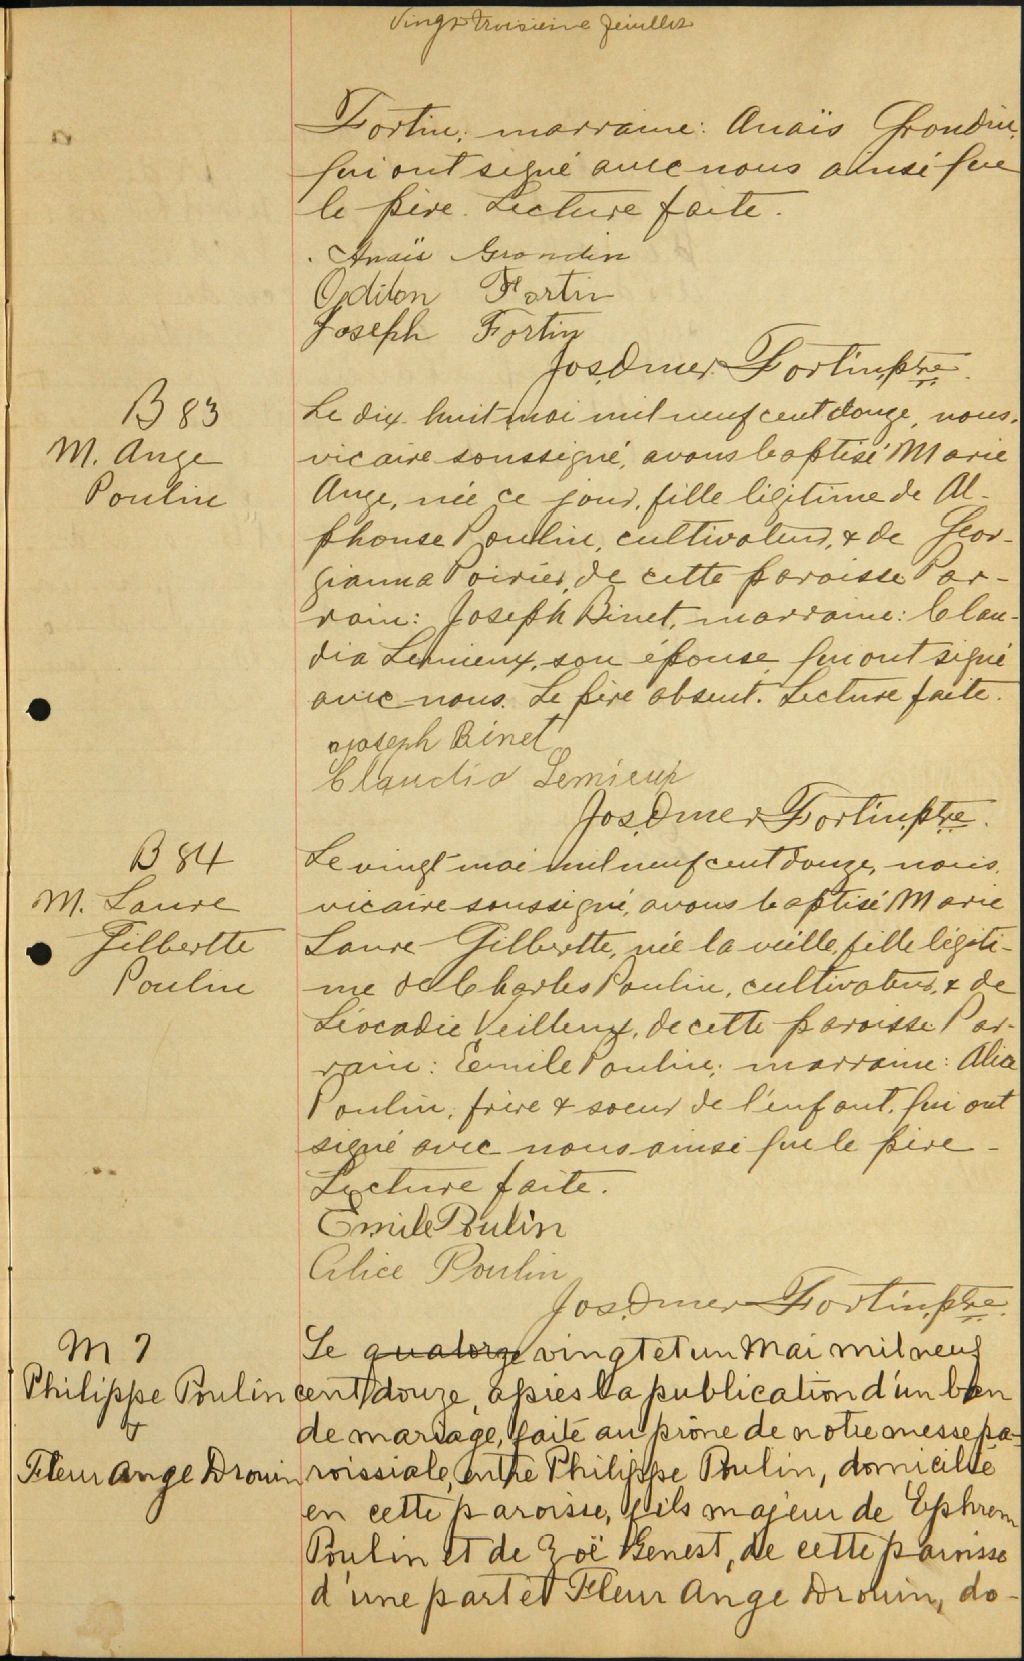 Vingt troisième feuillet
Fortin; marraine: Anaïs Grondin,
qui ont signé avec nous ainsi que
le père. Lecture faite.
Anaïs Grondin
Odilon Fortin
Joseph Fortin
Jos. Omer Fortin, ptre.
B 83
M. Ange
Poulin
Le dix-huit mai mil neuf cent douze, nous,
vicaire soussigné, avons baptisé Marie
Ange, née ce jour, fille légitime de Al-
phonse Poulin, cultivateur, & de Geor-
gianna Poirier, de cette paroisse Par-
rain: Joseph Binet, marraine: Clau-
dia Lemieux, son épouse, qui ont signé
avec nous. Le père absent. Lecture faite.
Joseph Binet
Claudia Lemieux
Jos. Omer Fortin, ptre.
B 84
M. Laure
Gilbertte
Poulin
Le vingt mai mil neuf cent douze, nous,
vicaire soussigné, avons baptisé Marie
Laure Gilbertte, née la veille, fille légiti-
me de Charles Poulin, cultivateur, & de
Léocadie Veilleux, de cette paroisse Par-
rain: Émile Poulin; marraine: Alice
Poulin, frère & soeur de l'enfant, qui ont
signé avec nous ainsi que le père -
Lecture faite.
Émile Poulin
Alice Poulin
Jos. Omer Fortin, ptre.
M 7
Philippe Poulin
&
Fleur Ange Drouin
Le quatorze vingt et un Mai mil neuf
cent douze, après la publication d'un ban
de mariage, faite au prône de notre messe pa-
roissiale, entre Philippe Poulin, domicilié
en cette paroisse, fils majeur de Ephrem
Poulin et de Zoë Genest, de cette paroisse
d'une part et Fleur Ange Drouin, do-